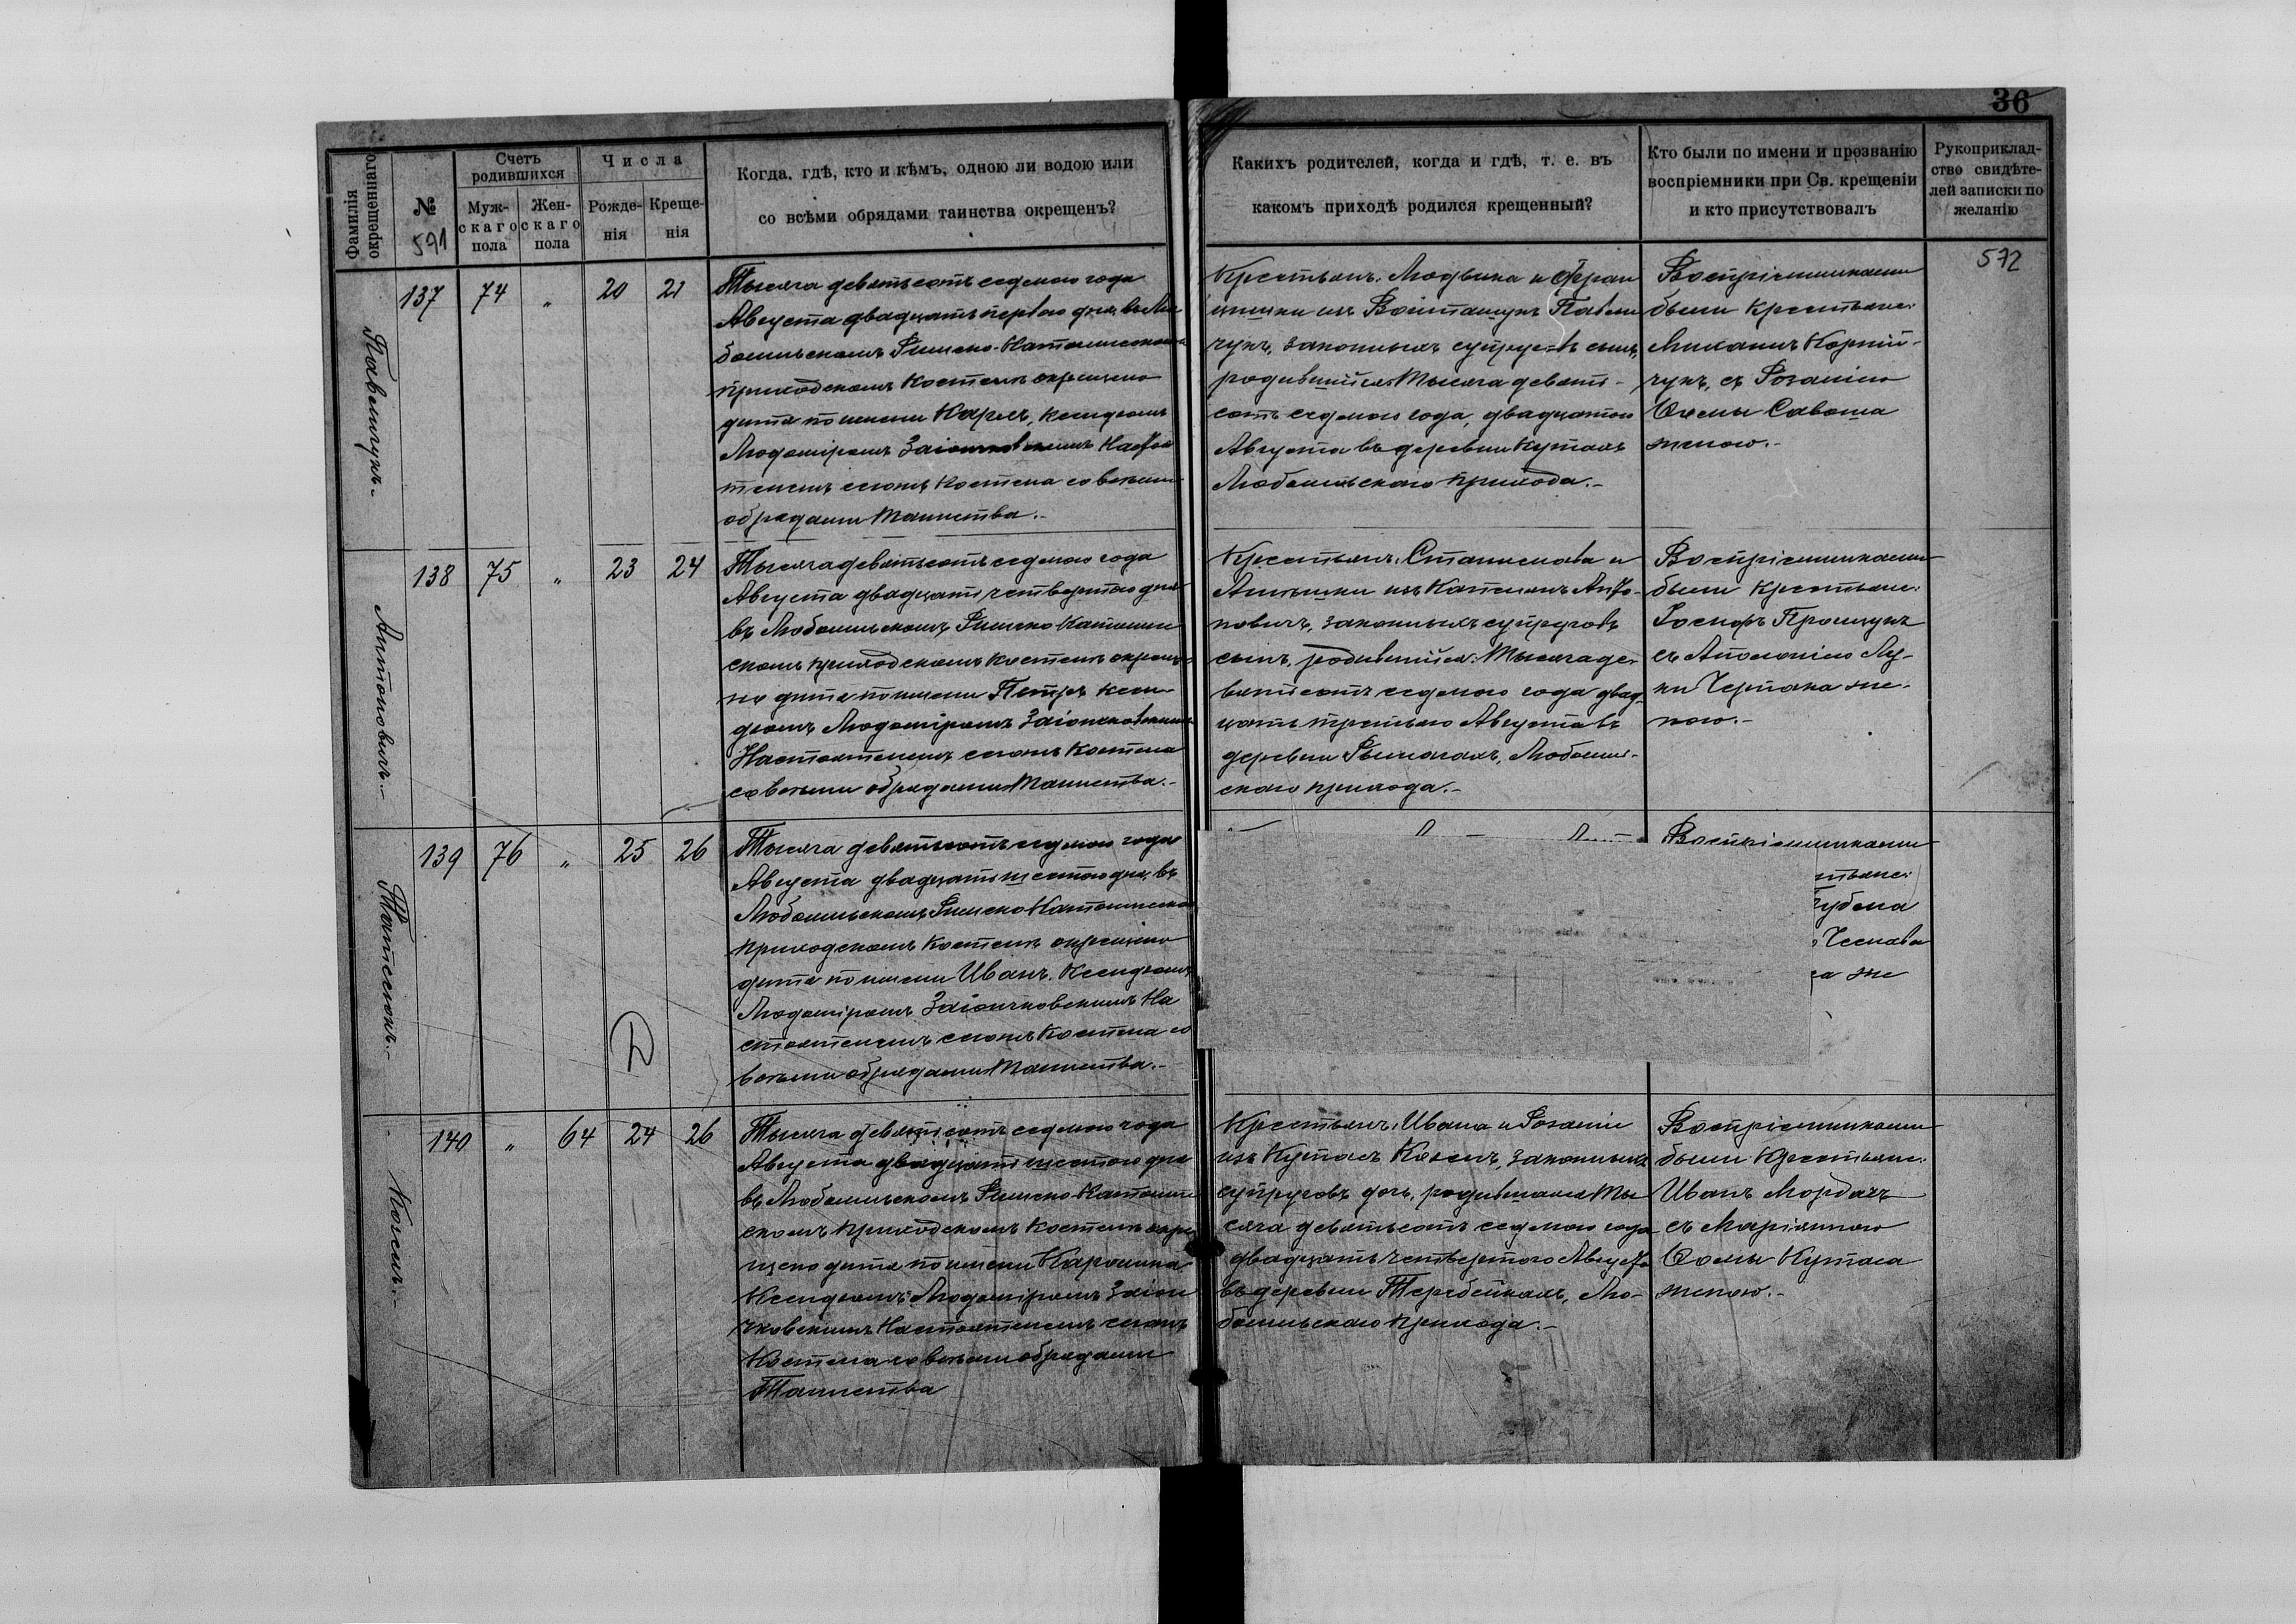 36
Фамилія окрещеннаго
№
591
Счетъ родившихся
Мужскаго пола
Женскаго пола
Числа
Рожденія
Крещенія
Когда, гдѣ, кто и кѣмъ, одною ли водою или
со всѣми обрядами таинства окрещенъ?
Какихъ родителей, когда и гдѣ, т. е. въ
какомъ приходѣ родился крещенный?
Кто были по имени и прозванію
воспріемники при Св. крещеніи
и кто присутствовалъ
Рукоприклад-
ство свидѣте-
лей записки по
желанію
572
Павельчукъ.-
137 74 " 20 21
Тысяча девятьсотъ седьмого года
Августа двадцать перваго дня, въ Лю
бомльскомъ Римско-Католическомъ
приходскомъ костелѣ окрещено
дитя по имени Карлъ, ксендзомъ
Людоміромъ Заіончковскимъ Настоя
телемъ сего же костела со всѣми
обрядами Таинства.-
Крестьянъ: Людвика и Фран
цишки изъ Войтащукъ Павель
чукъ, законныхъ супруговъ сынъ,
родившійся Тысяча девять-
сотъ седьмого года, двадцатого
Августа въ деревни Кутахъ
Любомльскаго прихода.-
Воспріемниками
были крестьяне:
Корній-
чукъ, съ Розаліею
Саваша
женою.-
Антоновичъ.-
138 75 " 23 24
Тысяча девятьсотъ седьмого года
Августа двадцать четвертого дня
въ Любомльскомъ Римско Католиче
скомъ приходскомъ костелѣ окреще
но дитя по имени Петръ ксен-
дзомъ Людоміромъ Заіончковскимъ
Настоятелемъ сего же костела
со всѣми обрядами Таинства.-
Крестьянъ: Станислава и
изъ Анто-
новичъ, законныхъ супруговъ
сынъ, родившійся Тысяча де-
вятьсотъ седьмого года двад-
цать третьяго Августа въ
деревни Рымачахъ, Любомль-
скаго прихода.-
Воспріемниками
были крестьяне:
Іосифъ
съ Аполоніею Лу-
ки же-
ною.-
139 76 " 25 26
Тысяча девятьсотъ седьмого года
Августа двадцать шестого дня, въ
Любомльскомъ Римско Католическомъ
приходскомъ костелѣ окрещено
дитя по имени Иванъ, Ксендзомъ
Людоміромъ Заіончковскимъ На
стоятелемъ сего же костела со
всѣми обрядами Таинства.-
Воспріемниками
тьяне:
Чеслава
же
Козелъ.-
140 " 64 24 26
Тысяча девятьсотъ седьмого года
Августа двадцать шестого дня
въ Любомльскомъ Римско-Католиче
скомъ приходскомъ костелѣ окре
щено дитя по имени Каролина
Ксендзомъ Людоміромъ Заіон
чковскимъ Настоятелемъ сего же
Костела со всѣми обрядами
Таинства
Крестьянъ: Ивана и Розаліи
изъ Козелъ, законныхъ
супруговъ дочь, родившаяся Ты
сяча девятьсотъ седьмого года
двадцать четвертого Августа
въ деревни Теребейкахъ, Лю-
бомльскаго прихода.-
Воспріемниками
были крестьяне:
Иванъ Мордахъ
съ Маріянною
Ѳомы
женою.-